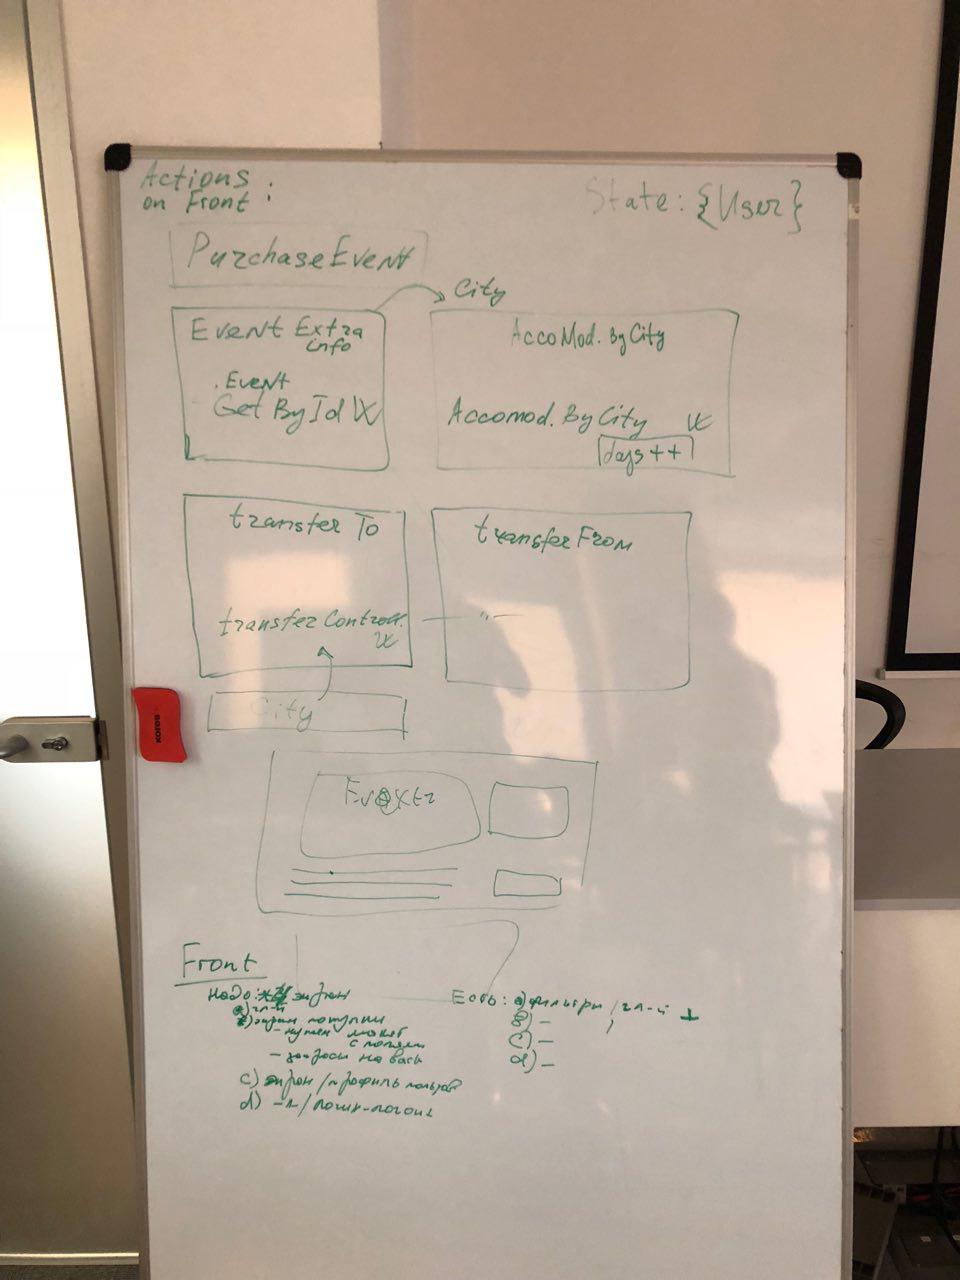 Actions
on Front :
State: {User}
PurchaseEvent
City
Event Extra
info
.Event
Get By Id
AccoMod. By City
Accomod. By City
days ++
transfer To
transfer Controll.
transfer From
City
Front
Надо: экран
a) гл-й
b) экран покупки
- нужен макет
с полями
- запросы на back
c) экран / профиль пользов
d) -л / логин-логаут
Есть: a) фильтры / гл-й +
B) -
C) -
d) -
KORES